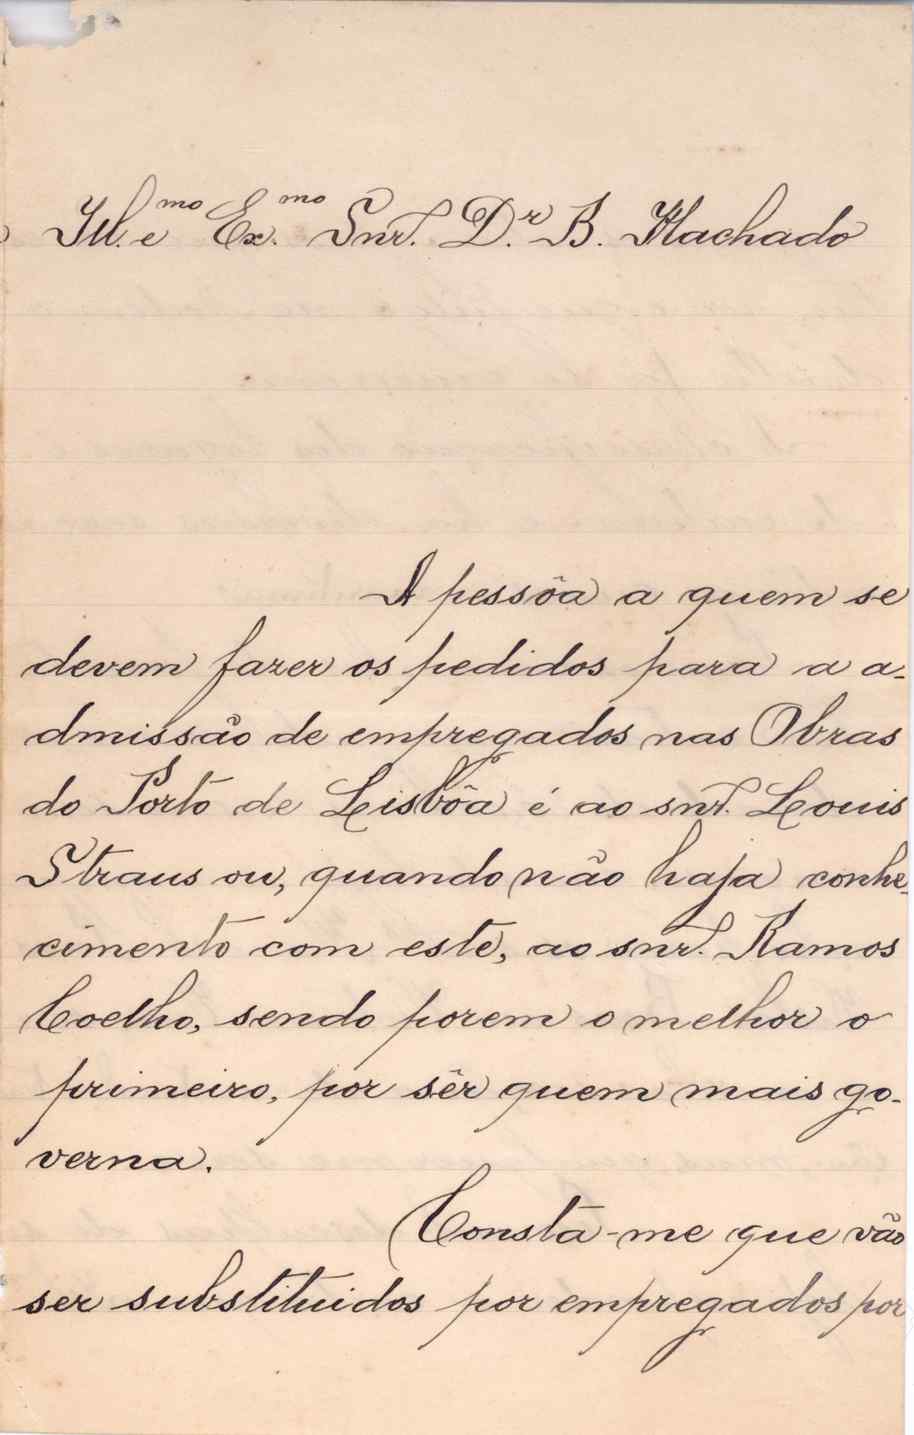 Ill.mo e Ex.mo Snr. D.r B. Machado
A pessôa a quem se
devem fazer os pedidos para a a-
dmissão de empregados nas Obras
do Porto de Lisbôa é ao snr. Louis
Straus ou, quando não haja conhe-
cimento com este, ao snr. Ramos
Coelho, sendo porem o melhor o
primeiro, por sêr quem mais go-
verna.
Consta-me que vão
ser substituidos por empregados por